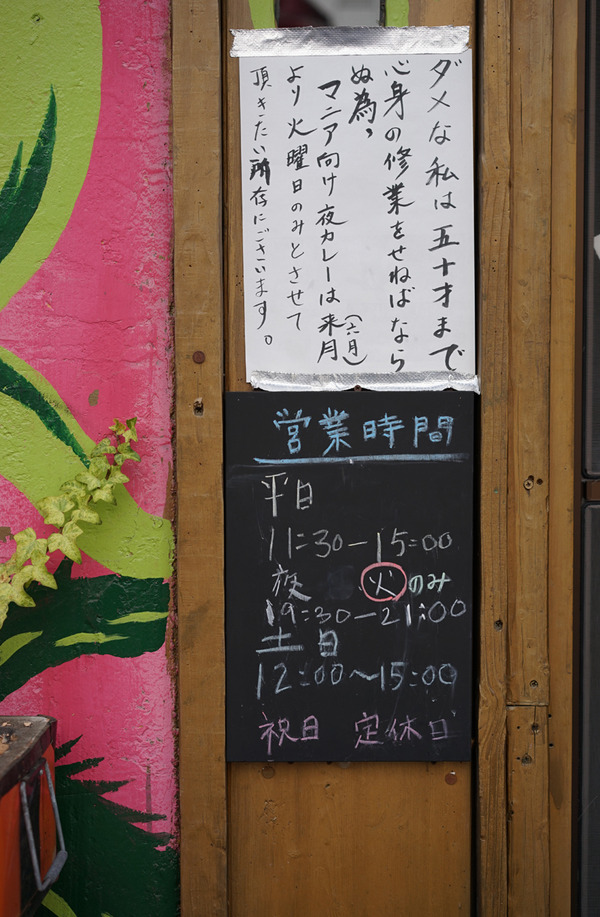 ダメな私は五十才まで
心身の修業をせねばなら
ぬ為、
マニア向け夜カレーは来月
(六月)
より火曜日のみとさせて
頂きたい所存にございます。
営業時間
平日
11:30－15:00
夜 火のみ
19:30－21:00
土日
12:00〜15:00
祝日 定休日